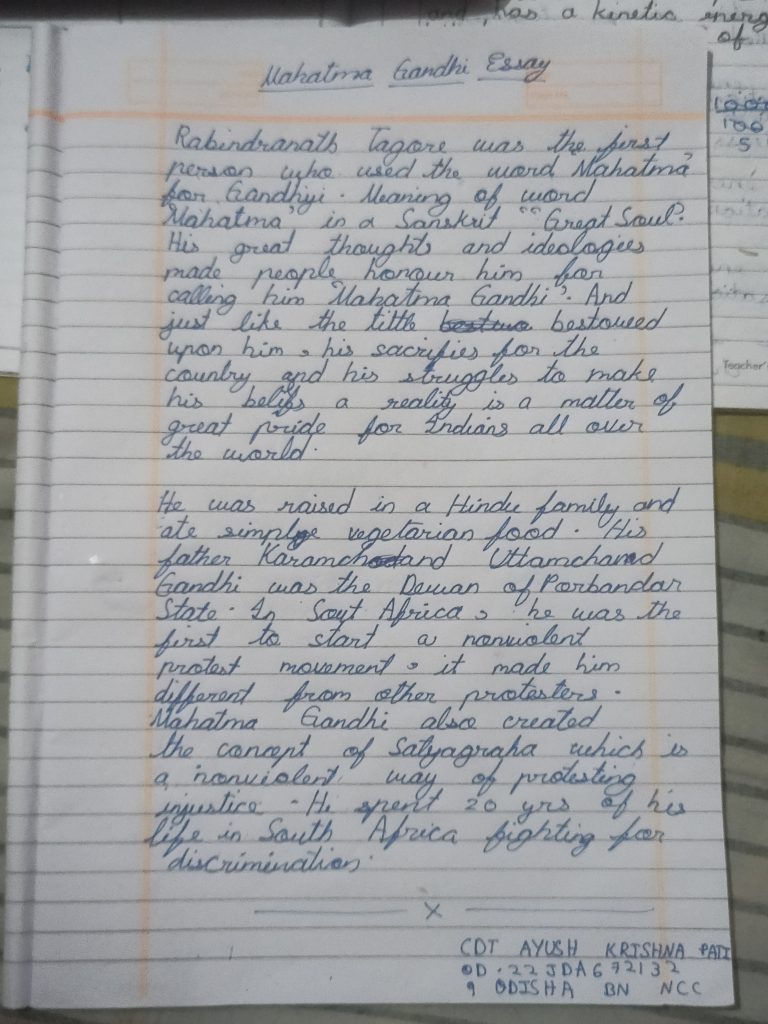 and, has a kinetic energ
of
100
100
5
Teacher's
Mahatma Gandhi Essay
Rabindranath Tagore was the first
person who used the word 'Mahatma'
for Gandhiji. Meaning of word
'Mahatma' in a Sanskrit "Great Soul".
His great thoughts and ideologies
made people honour him for
calling him 'Mahatma Gandhi'. And
just like the tittle bestowed
upon him, his sacrifies for the
country and his struggles to make
his belifs a reality is a matter of
great pride for Indians all over
the world.
He was raised in a Hindu family and
ate simple vegetarian food. His
father Karamchand Uttamchand
Gandhi was the Dewan of Porbandar
State. In Sout Africa, he was the
first to start a nonviolent
protest movement, it made him
different from other protesters.
Mahatma Gandhi also created
the concept of Satyagraha which is
a nonviolent way of protesting
injustice. He spent 20 yrs of his
life in South Africa fighting for
discrimination.
x
CDT AYUSH KRISHNA PATI
OD.22JDA672132
9 ODISHA BN NCC